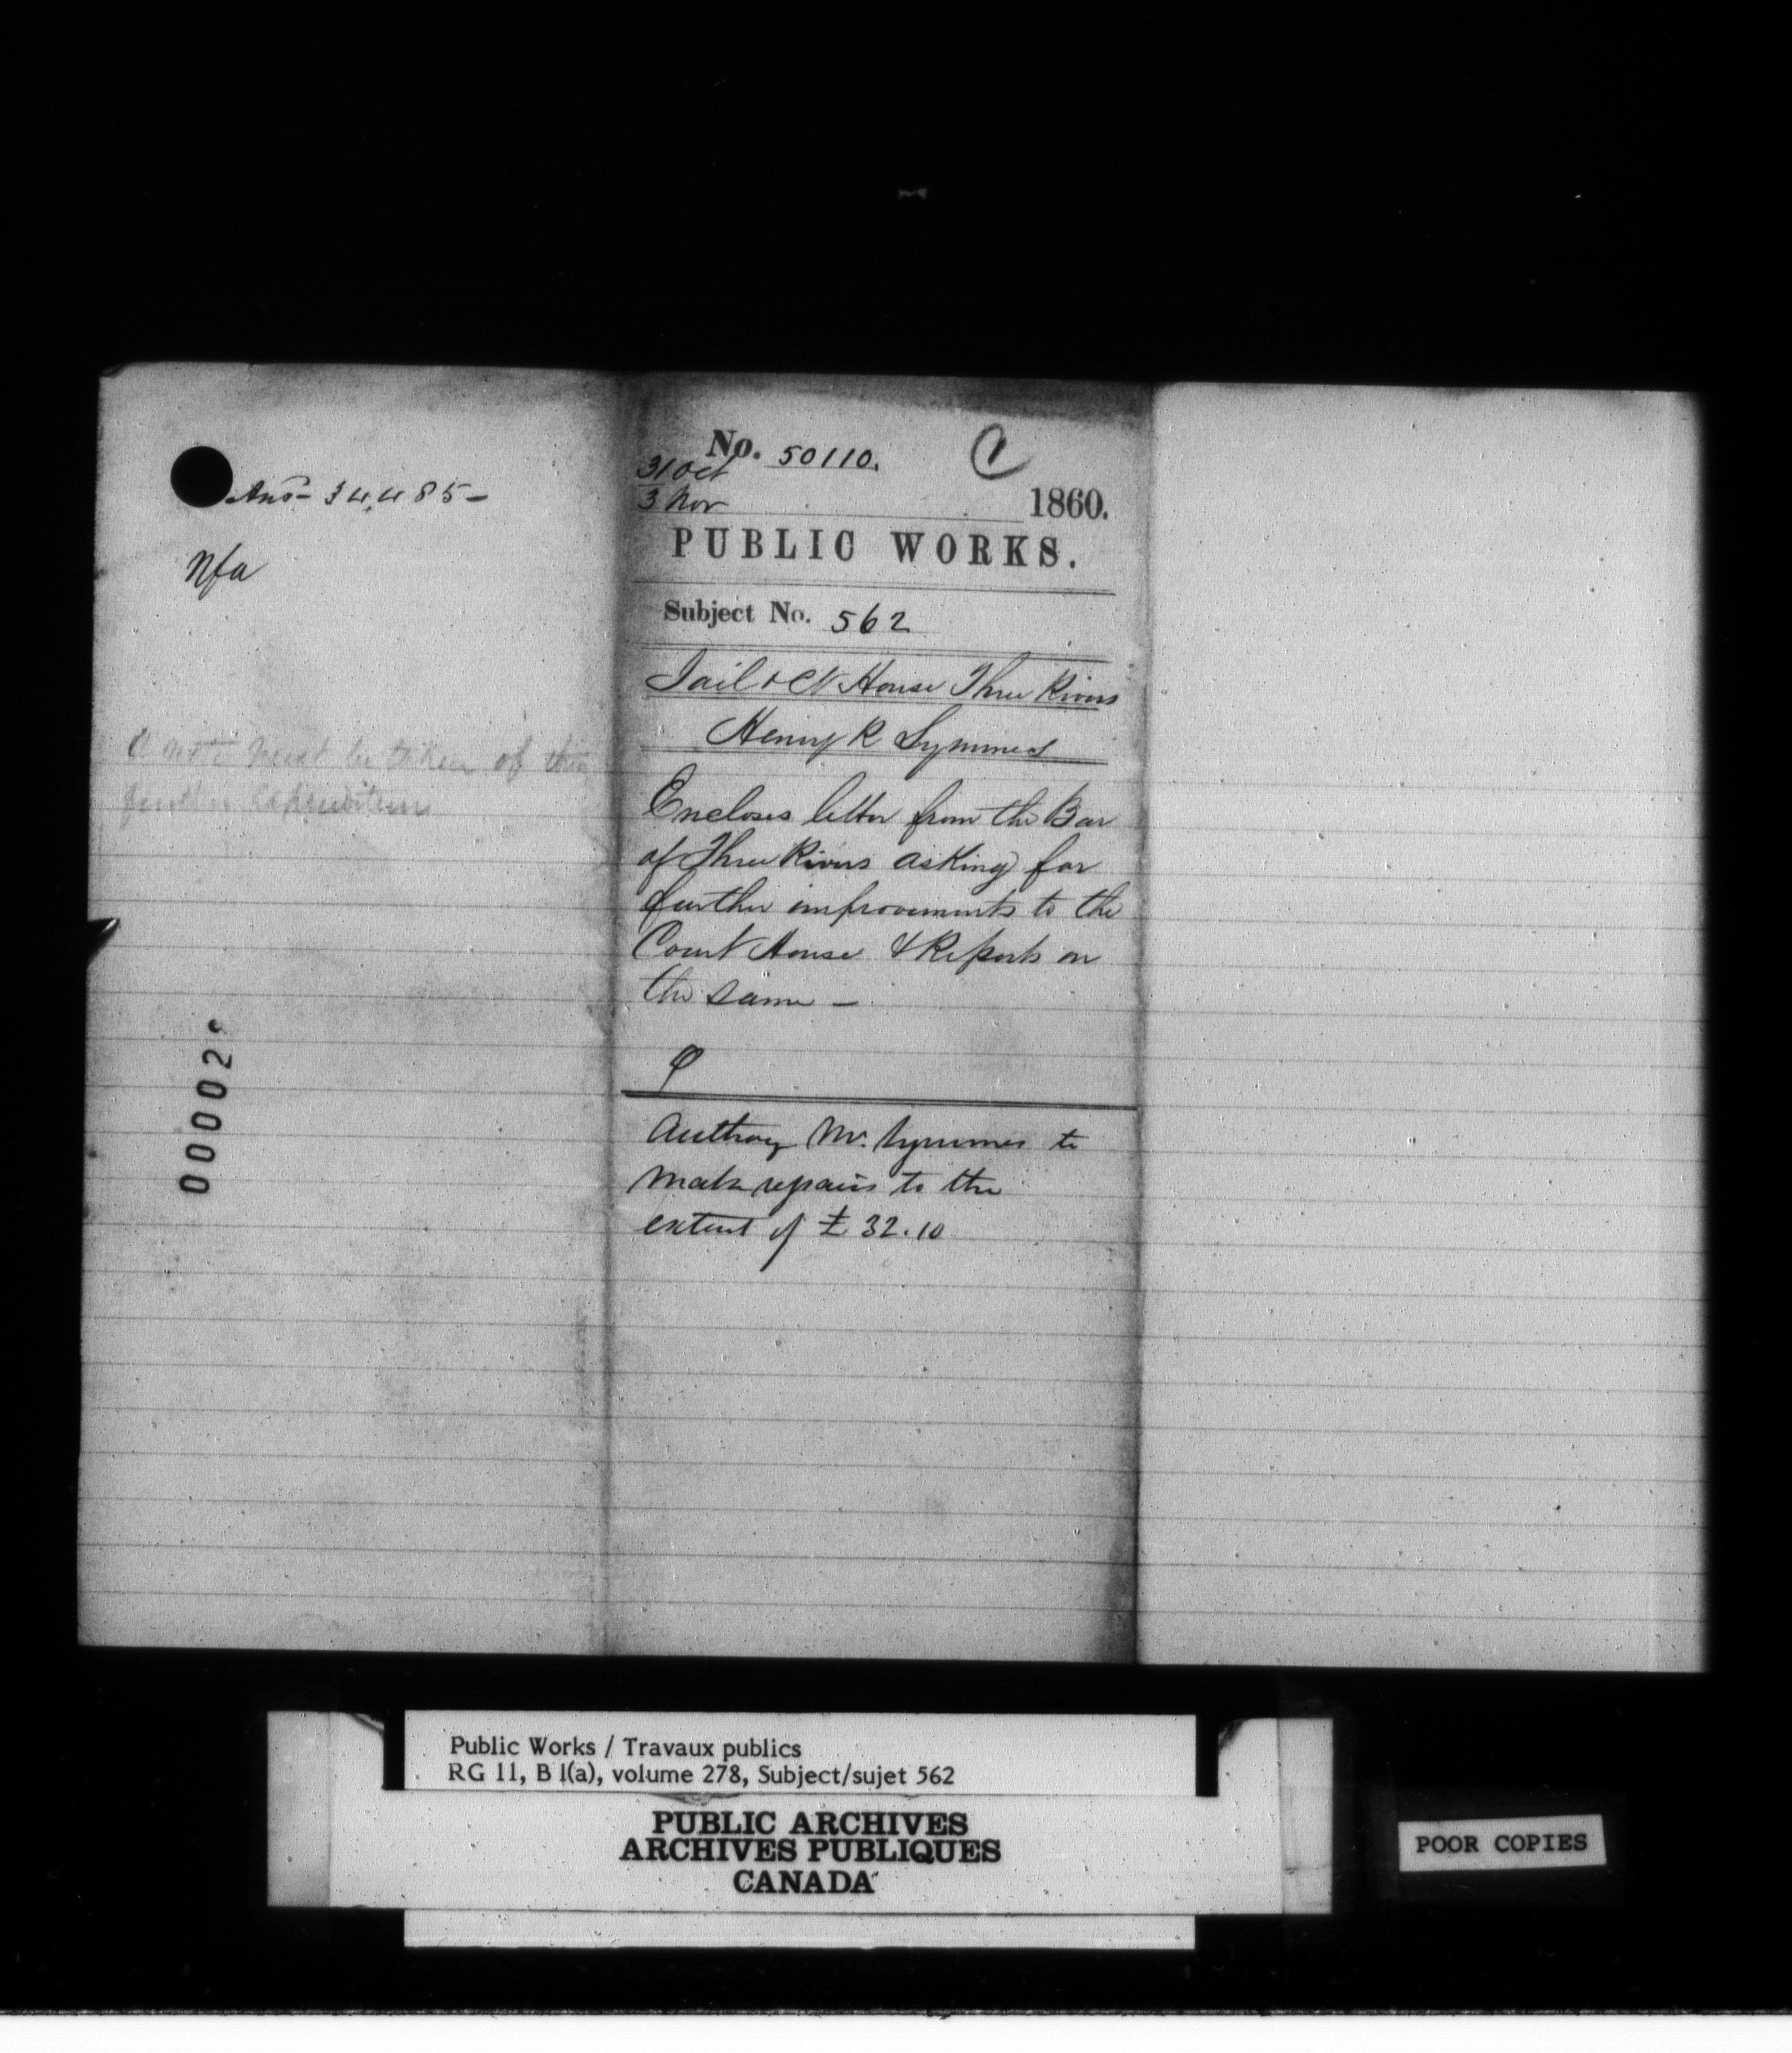 Ans^d 34,485 –
Nfa
A note must be taken of this
further expenditure
00002
No. 50110.
31 Oct
3 Nov 1860.
PUBLIC WORKS.
Subject No. 562
Jail & Ct House Three Rivers
Henry R Symmes
Encloses letter from the Bar
of Three Rivers asking for
further improvements to the
Court House & Reports on
the same –
Authorize Mr. Symmes to
make repairs to the
extent of £ 32.10
Public Works / Travaux publics
RG 11, B 1(a), volume 278, Subject/sujet 562
PUBLIC ARCHIVES
ARCHIVES PUBLIQUES
CANADA
POOR COPIES